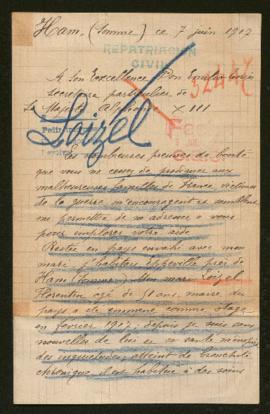 Ham, (Somme) ce 7 juin 1917
REPATRIACION
CIVIL
A Son Excellence Don Emilio
Secretaire particulier de
Sa Majesté Alphonse XIII
Loizel
Les nombreuses preuves de bonté
que vous ne cessez de prodiguer aux
malheureuses familles de France, victimes
de la guerre, m'encouragent et semblent
me permettre de m'adresser a vous
pour implorer votre aide
Restée en pays envahi avec mon
mari j'habitais Eppeville près de
Ham (Somme). Mon mari Loizel
Florentin agé de 51 ans, maire du
pays a été emmené comme otage
en février 1917, depuis je suis sans
nouvelles de lui et sa santé
des inquiétudes, atteint de bronchite
chronique il est habitué à des soins